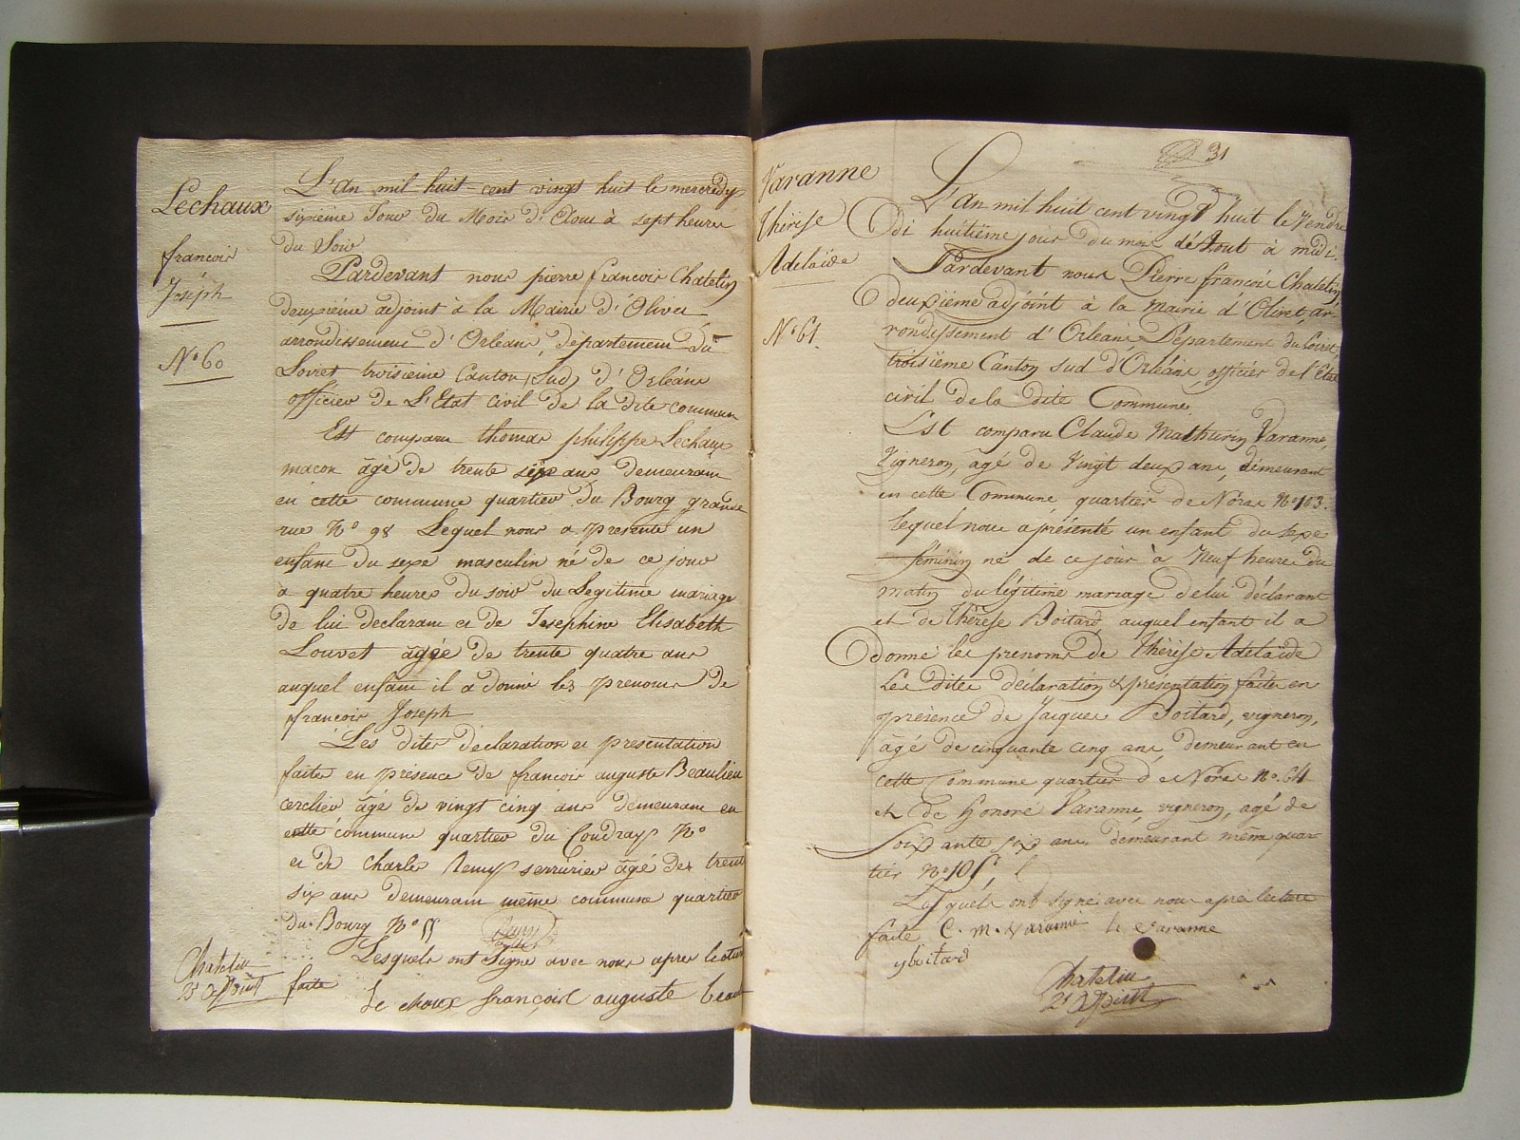 Lechaux
francois
Joseph
N° 60
L'An mil huit cent vingt huit le mercredy
sixième Jour du Mois d'Aout à sept heures
du Soir
Pardevant nous pierre francois Chatelin
deuxième adjoint à la Mairie d'Olivet
arrondissement d'Orléans, département du
Loiret troisieme Canton (Sud) d'Orléans
officier de L'Etat Civil de la dite commune
Est comparu thomas philippe Lechaux
macon âgé de trente six ans demeurant
en cette commune quartier du Bourg grande
rue N° 98 Lequel nous a presenté un
enfant du sexe masculin né de ce jour
à quatre heures du soir du Legitime mariage
de lui declarant et de Josephine Elisabeth
Louvet âgée de trente quatre ans
auquel enfant il a donné les prenoms de
francois Joseph
Les dites declaration et presentation
faites en présence de francois auguste Beaulieu
cerclier âgé de vingt cinq ans demeurant en
cette commune quartier du Coudray N°
et de Charles Remy serrurier âgé de trente
six ans demeurant même commune quartier
du Bourg N° 55
Lesquels ont Signé avec nous apres lecture
faite
Le choux françois auguste beau
Chatelin
2e adjoint
31
Varanne
Thérèse
Adelaïde
N° 61.
L'an mil huit cent vingt huit le Vendre
di huitième jour du mois d'Aout à midi.
Pardevant nous Pierre francois Chatelin
deuxième adjoint à la mairie d'Olivet, ar-
rondissement d'Orléans Département du Loiret,
troisième Canton sud d'Orléans, officier de l'Etat
civil de la dite Commune.
Est comparu Claude Mathurin Varanne,
Vigneron, âgé de Vingt deux ans, demeurant
en cette Commune, quartier de Noras N° 103.
lequel nous a présenté un enfant du sexe
féminin né de ce jour à Neuf heures du
matin du légitime mariage de lui déclarant
et de Thérèse Boitard auquel enfant il a
donné les prenoms de Thérèse Adelaïde
Les dites declaration & présentation faites en
présence de Jacques Boitard, vigneron,
âgé de cinquante cinq ans demeurant en
cette Commune quartier de Noras N° 64
et de Honoré Varanne, vigneron, agé de
Soixante six ans demeurant même quar-
tier N° 105,
Lesquels ont signé avec nous après lecture
faite C. m. varanne h varanne
y boitard
Chatelin
2e adjoint